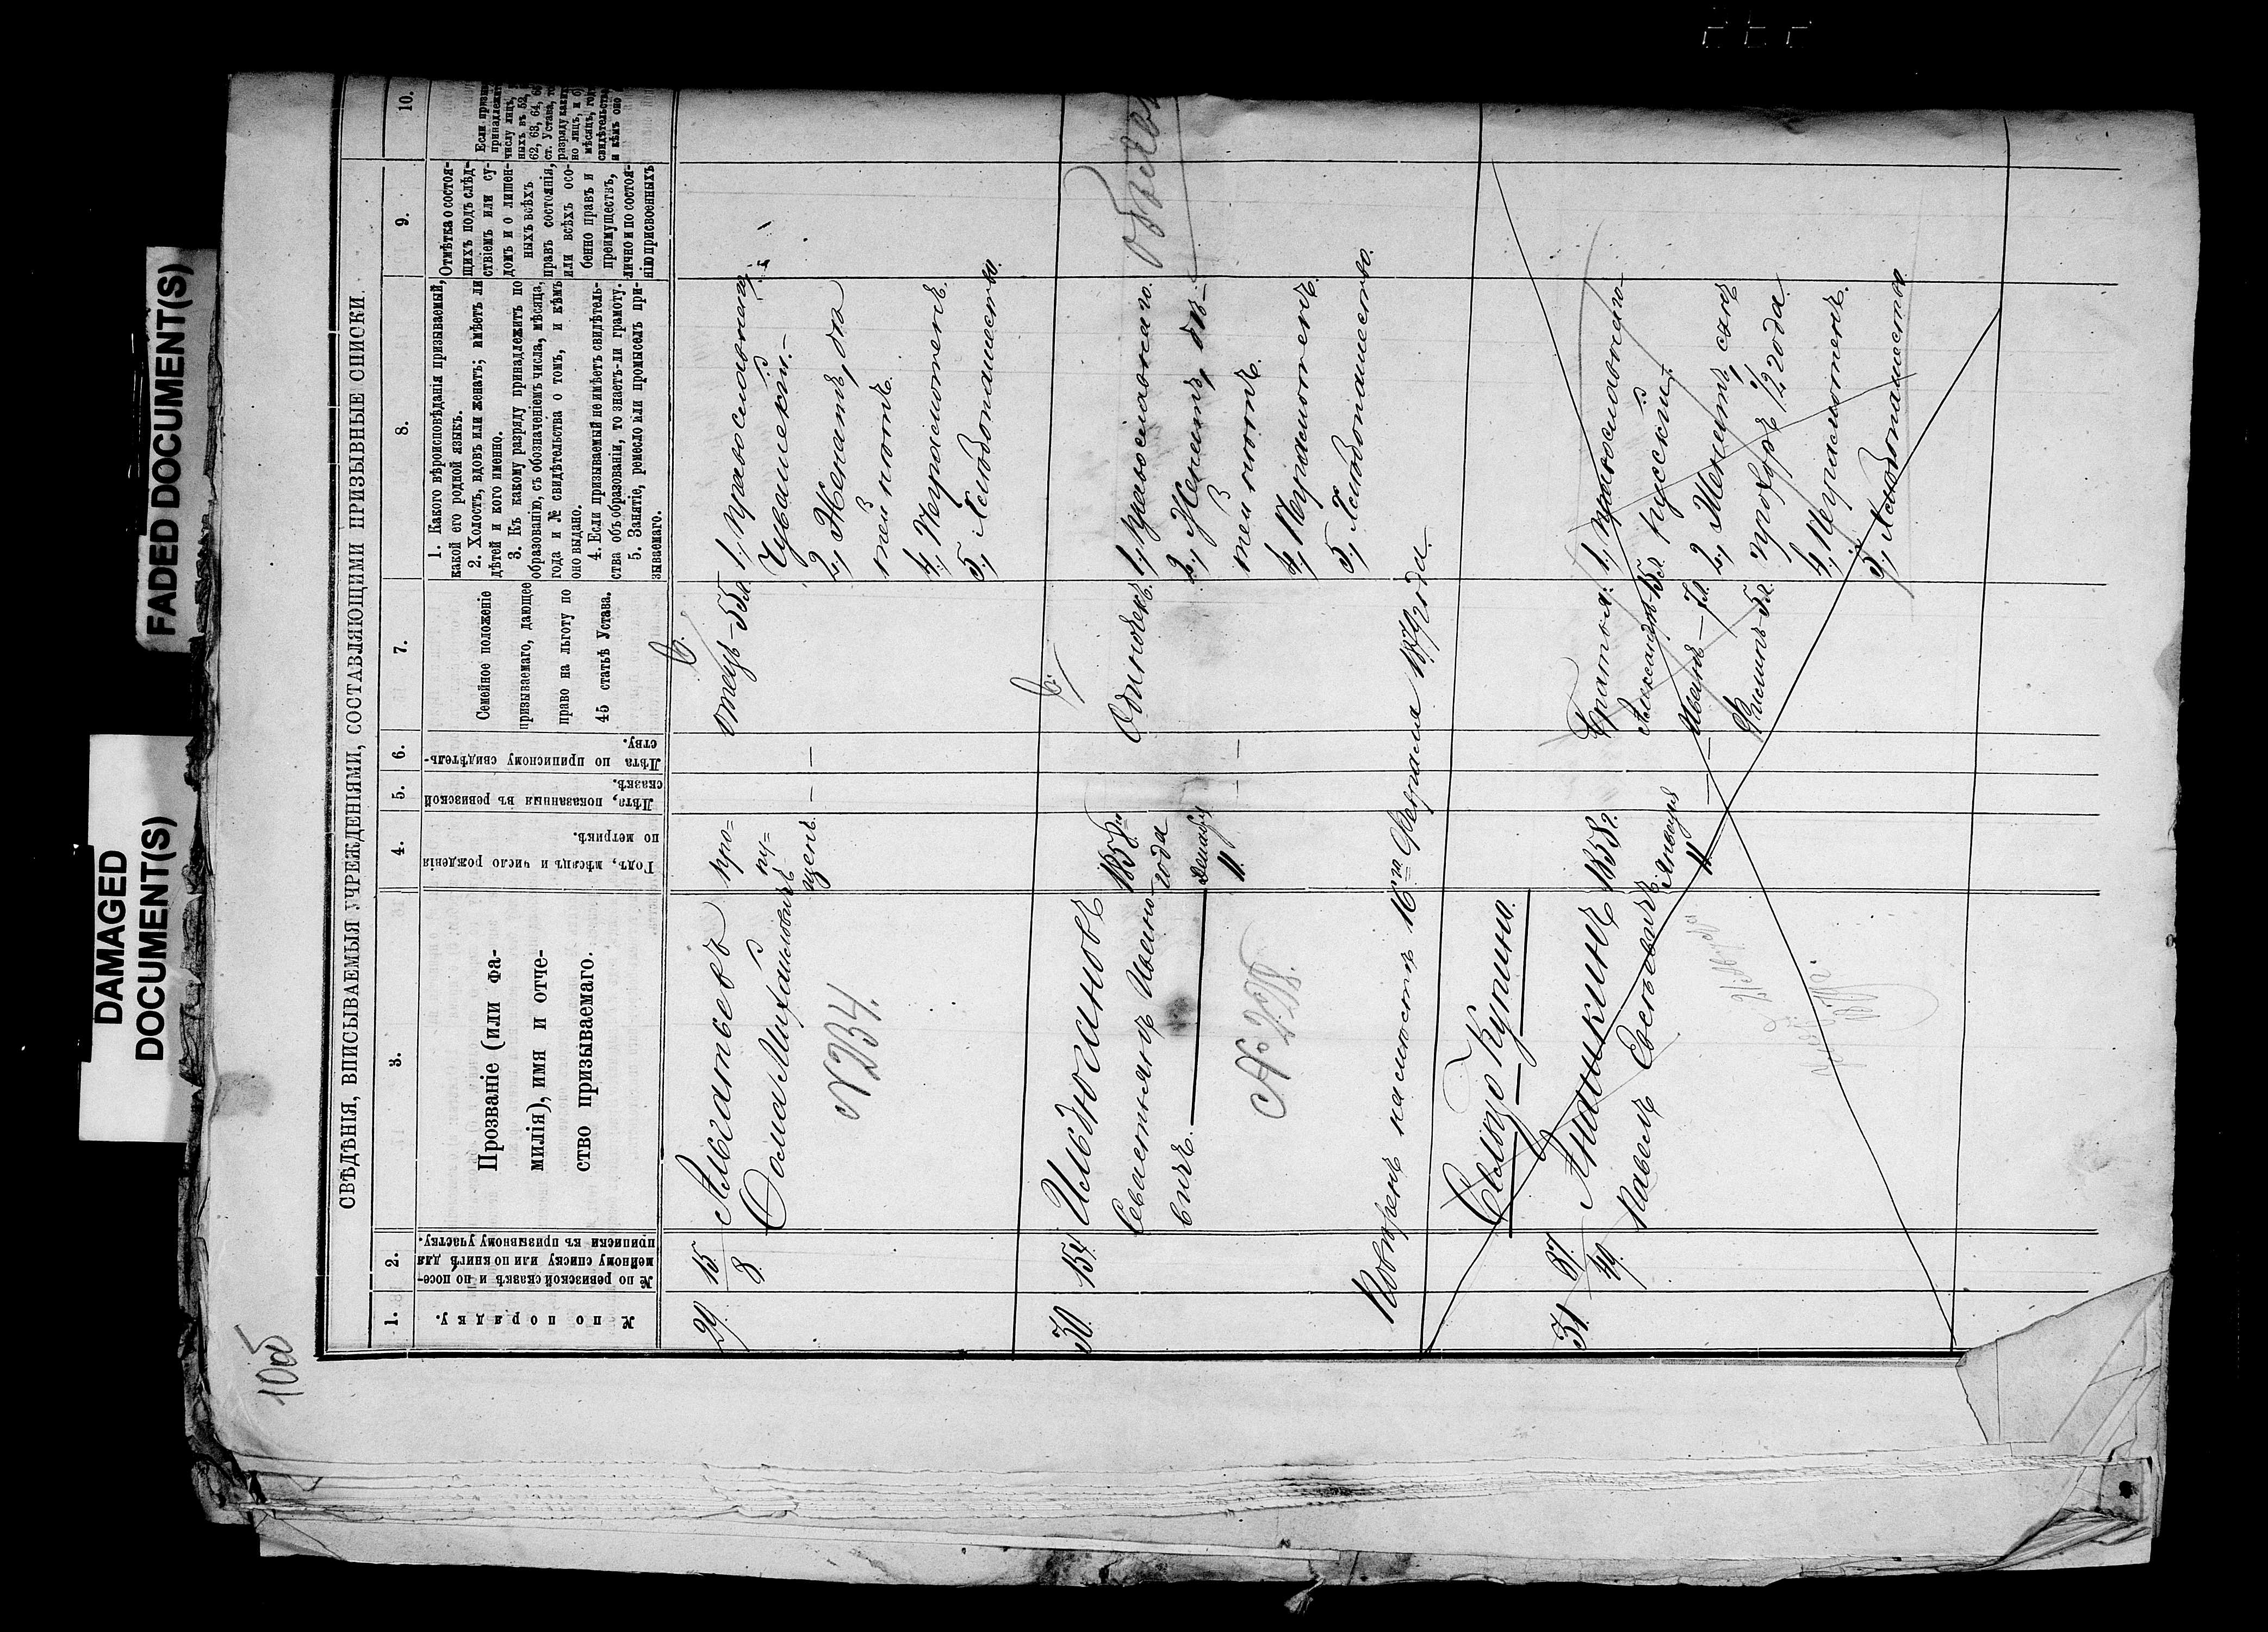 DAMAGED
DOCUMENT(S)
FADED DOCUMENT(S)
10об
СВѢДѢНІЯ, ВПИСЫВАЕМЫЯ УЧРЕЖДЕНІЯМИ, СОСТАВЛЯЮЩИМИ ПРИЗЫВНЫЕ СПИСКИ.
1.
2.
3.
4.
5.
6.
7.
8.
9.
10.
№ по порядку.
№ по ревизской сказкѣ и по посе-
мейному списку или по книгѣ для
приписки къ призывному участку.
Прозваніе (или фа-
милія), имя и отче-
ство призываемаго.
Годъ, мѣсяцъ и число рожденія
по метрикѣ.
Лѣта, показанныя въ ревизской
сказкѣ.
Лѣта по приписному свидѣтель-
ству.
Семейное положеніе
призываемаго, дающее
право на льготу по
45 статьѣ Устава.
1. Какого вѣроисповѣданія призываемый,
какой его родной языкъ.
2. Холостъ, вдовъ или женатъ; имѣетъ ли
дѣтей и кого именно.
3. Къ какому разряду принадлежитъ по
образованію, съ обозначеніемъ числа, мѣсяца,
года и № свидѣтельства о томъ, и кѣмъ
оно выдано.
4. Если призываемый не имѣетъ свидѣтель-
ства объ образованіи, то знаетъ-ли грамоту.
5. Занятіе, ремесло или промыселъ при-
зываемаго.
Отмѣтка о состоя-
щихъ подъ слѣд-
ствіемъ или су-
домъ и о лишен-
ныхъ всѣхъ
правъ состоянія,
или всѣхъ осо-
бенно правъ и
преимуществъ,
лично и по состоя-
нію присвоенныхъ
Если призы
принадлежит
числу лицъ,
ныхъ въ 52,
62, 63, 64,
ст. Устава, то
разряду каких
но лицъ, и
мѣсяцъ, год
свидѣтельства
и кѣмъ оно
29. 15
8.
Оома Михайловичъ
N 234.
про-
пу-
щенъ.
—
—
отецъ - 55 л.
1., православнаго
Чувашскій.-
2., Женатъ, дѣ
тей нѣтъ.
4., Неграмотенъ.
5., Хлѣбопашество.
30. 154.
Севастьянъ Ивано-
вичъ.
1858
года
Декабря
11.
—
—
Одинокъ.
1., православнаго.
2., Женатъ, дѣ-
тей нѣтъ.
4., Неграмотенъ.
5., Хлѣбопашество.
16 Февраля 1879 года.
Сельцо Купино.
31. 87.
49.
Анашкинъ
Павелъ
1858 г.
Января
11.
—
—
Братья:
Александръ 15 л.
Иванъ — 7 л.
Филипъ 5 л.
1., православнаго
русскій.
2., Женатъ, сынъ
Прохоръ 1/2 года.
4., Неграмотенъ.
5., Хлѣбопашество